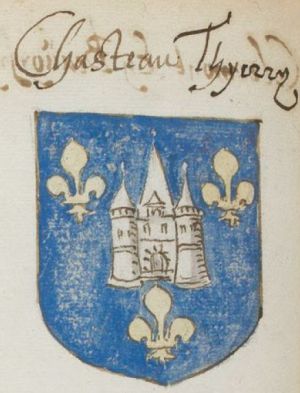 Chasteau Thyerry